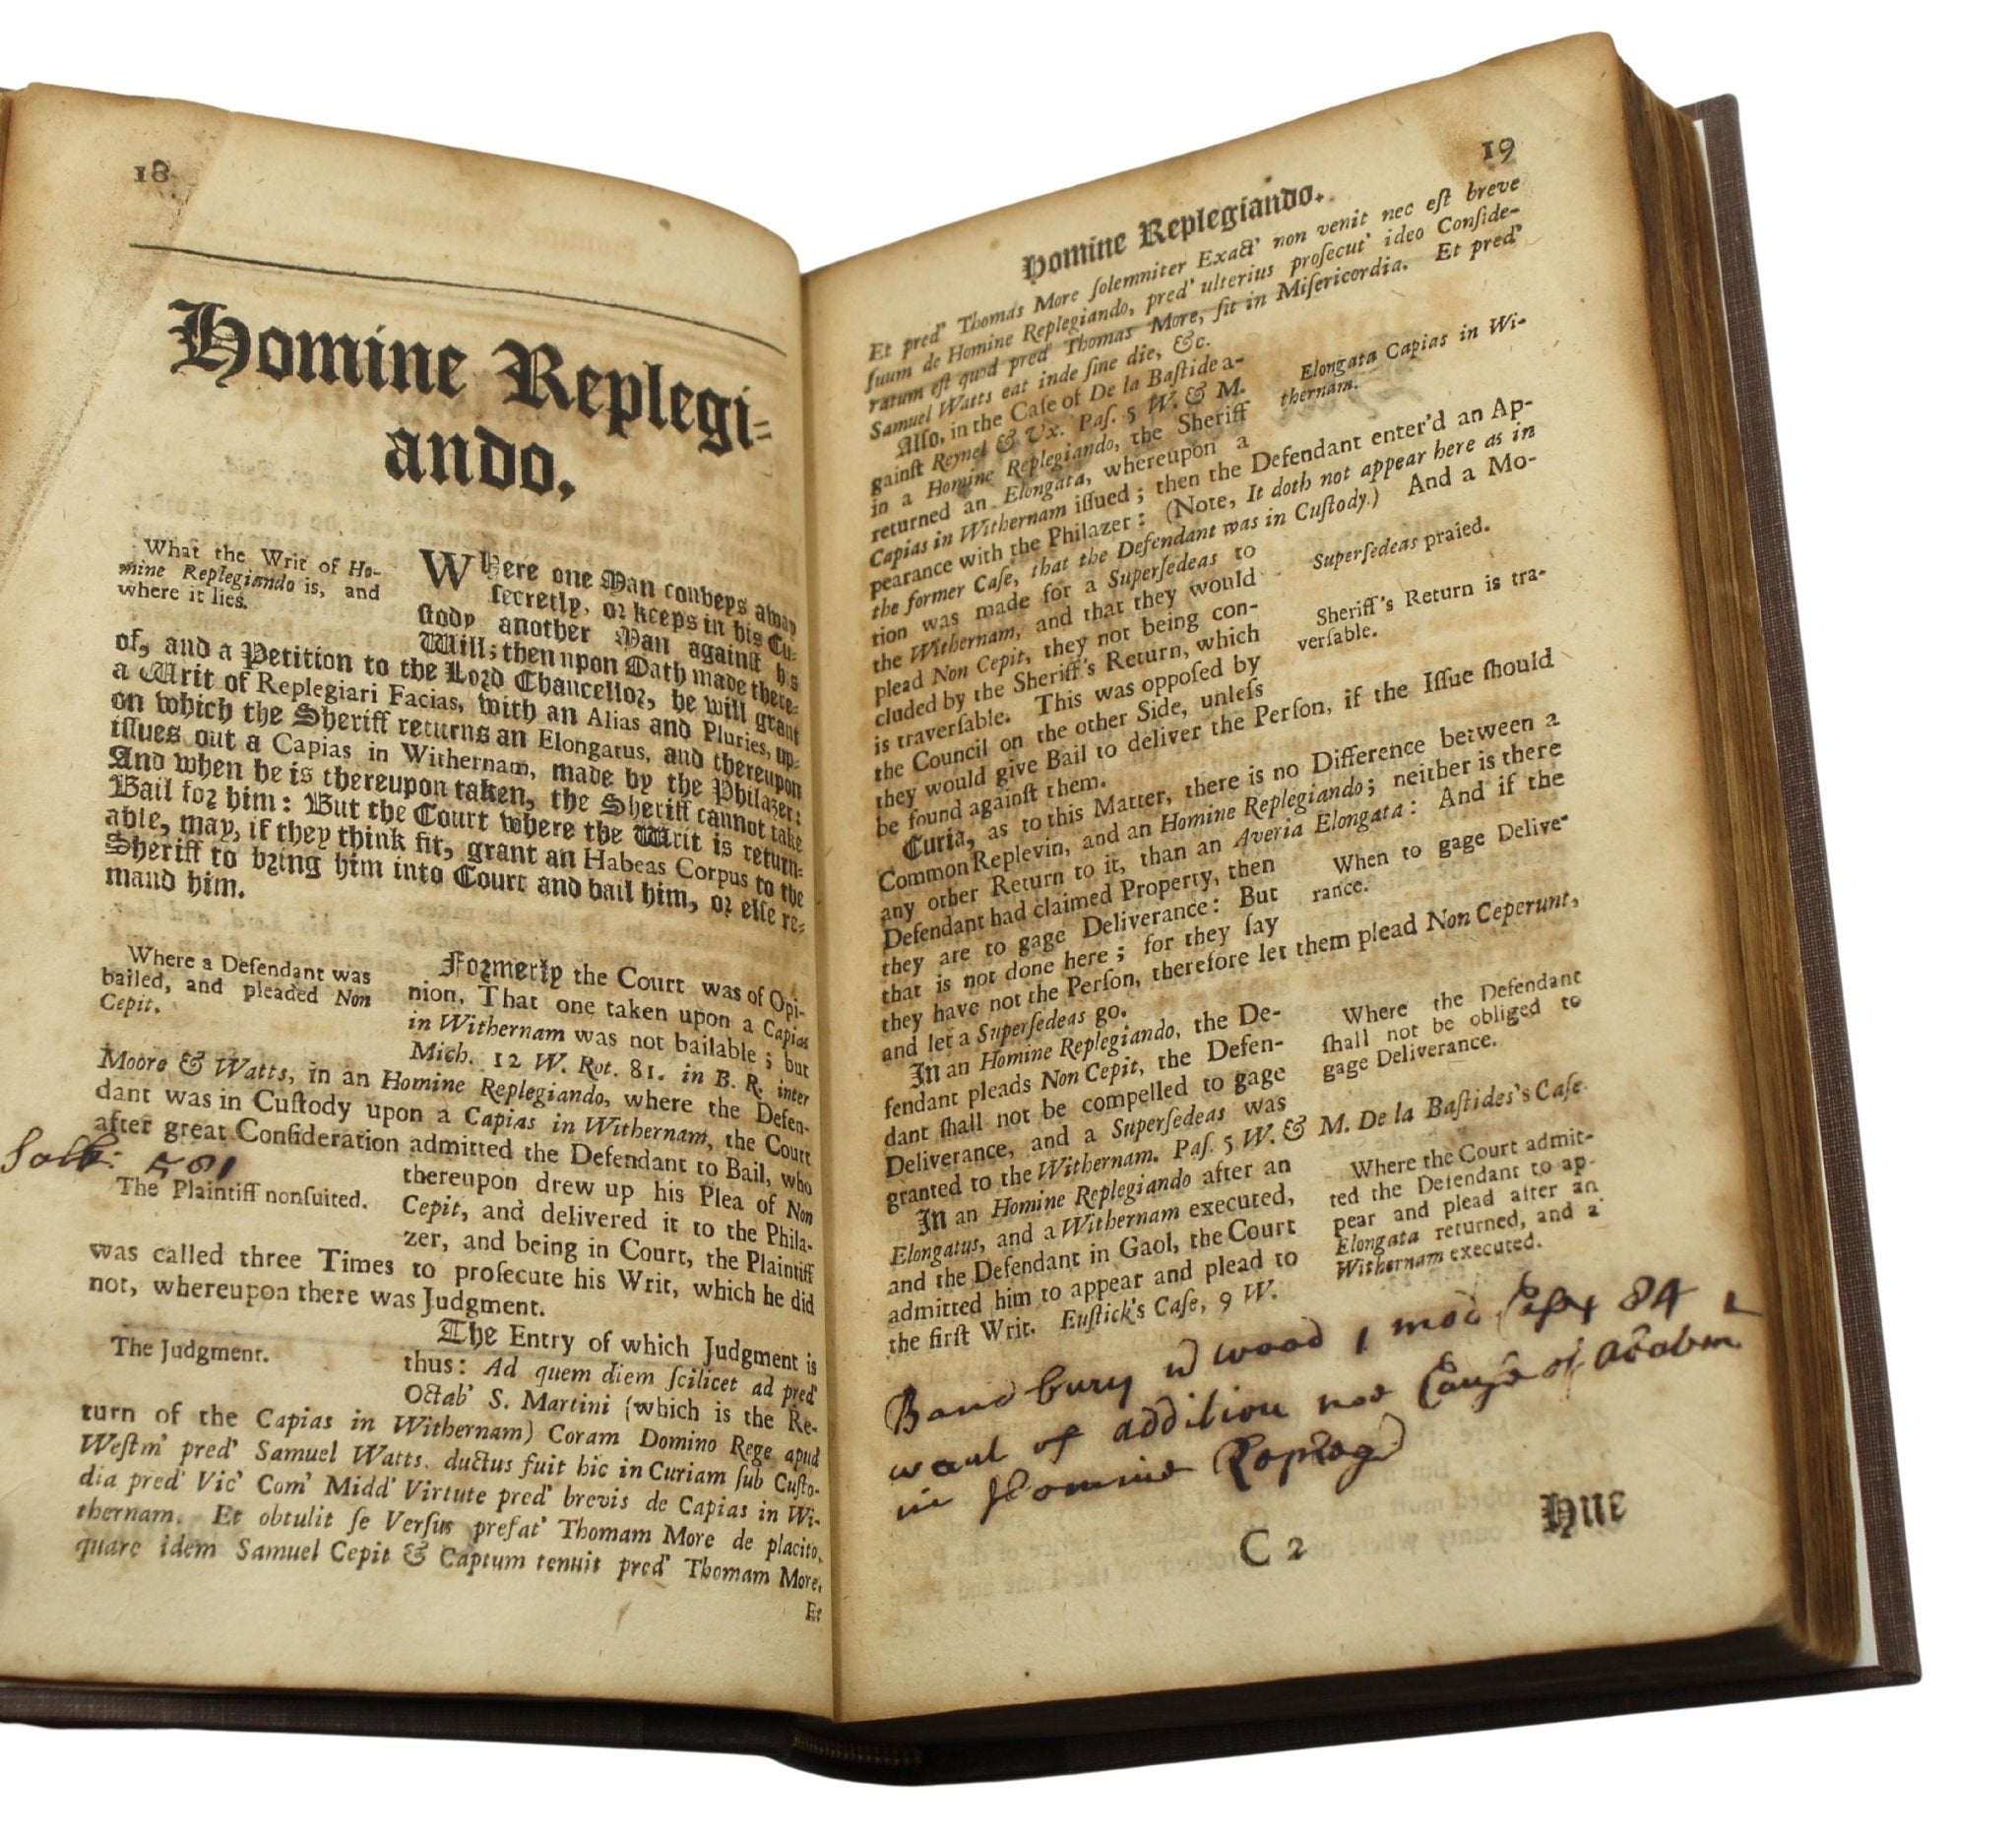 18
Homine Replegi-
ando.
What the Writ of Ho-
mine Replegiando is, and
where it lies.
Where one Man conveys away
secretly, or keeps in his Cu-
stody another Man against his
Will; then upon Oath made there-
of, and a Petition to the Lord Chancellor, he will grant
a Writ of Replegiari Facias, with an Alias and Pluries, up-
on which the Sheriff returns an Elongatus, and thereupon
issues out a Capias in Withernam, made by the Philazer:
And when he is thereupon taken, the Sheriff cannot take
Bail for him: But the Court where the Writ is return-
able, may, if they think fit, grant an Habeas Corpus to the
Sheriff to bring him into Court and bail him, or else re-
mand him.
Where a Defendant was
bailed, and pleaded Non
Cepit.
Formerly the Court was of Opi-
nion, That one taken upon a Capias
in Withernam was not bailable; but
Mich. 12 W. Rot. 81. in B. R. inter
Moore & Watts, in an Homine Replegiando, where the Defen-
dant was in Custody upon a Capias in Withernam, the Court
after great Consideration admitted the Defendant to Bail, who
Salk: 581
The Plaintiff nonsuited.
thereupon drew up his Plea of Non
Cepit, and delivered it to the Phila-
zer, and being in Court, the Plaintiff
was called three Times to prosecute his Writ, which he did
not, whereupon there was Judgment.
The Judgment.
The Entry of which Judgment is
thus: Ad quem diem scilicet ad pred'
Octab' S. Martini (which is the Re-
turn of the Capias in Withernam) Coram Domino Rege apud
Westm' pred' Samuel Watts. ductus fuit hic in Curiam sub Custo-
dia pred' Vic' Com' Midd' Virtute pred' brevis de Capias in Wi-
thernam. Et obtulit se Versus prefat' Thomam More de placito,
quare idem Samuel Cepit & Captum tenuit pred' Thomam More.
Et
19
Homine Replegiando.
Et pred' Thomas More solemniter Exact' non venit nec est breve
suum de Homine Replegiando, pred' ulterius prosecut' ideo Conside-
ratum est quod pred' Thomas More, sit in Misericordia. Et pred'
Samuel Watts eat inde sine die, &c.
Also, in the Case of De la Bastide a-
gainst Reynel & Ux. Pas. 5 W. & M.
in a Homine Replegiando, the Sheriff
returned an Elongata, whereupon a
Elongata Capias in Wi-
thernam.
Capias in Withernam issued; then the Defendant enter'd an Ap-
pearance with the Philazer: (Note, It doth not appear here as in
the former Case, that the Defendant was in Custody.) And a Mo-
tion was made for a Supersedeas to
the Withernam, and that they would
plead Non Cepit, they not being con-
cluded by the Sheriff's Return, which
is traversable. This was opposed by
the Council on the other Side, unless
Supersedeas praied.
Sheriff's Return is tra-
versable.
they would give Bail to deliver the Person, if the Issue should
be found against them.
Curia, as to this Matter, there is no Difference between a
Common Replevin, and an Homine Replegiando; neither is there
any other Return to it, than an Averia Elongata: And if the
Defendant had claimed Property, then
they are to gage Deliverance: But
that is not done here; for they say
When to gage Delive-
rance.
they have not the Person, therefore let them plead Non Ceperunt,
and let a Supersedeas go.
In an Homine Replegiando, the De-
fendant pleads Non Cepit, the Defen-
dant shall not be compelled to gage
Deliverance, and a Supersedeas was
Where the Defendant
shall not be obliged to
gage Deliverance.
granted to the Withernam. Pas. 5 W. & M. De la Bastides's Case.
In an Homine Replegiando after an
Elongatus, and a Withernam executed,
and the Defendant in Gaol, the Court
admitted him to appear and plead to
the first Writ. Eustick's Case, 9 W.
Where the Court admit-
ted the Defendant to ap-
pear and plead after an
Elongata returned, and a
Withernam executed.
wood 1 mod 84
want of addition noe Cause of
in Homine Repleg
C 2